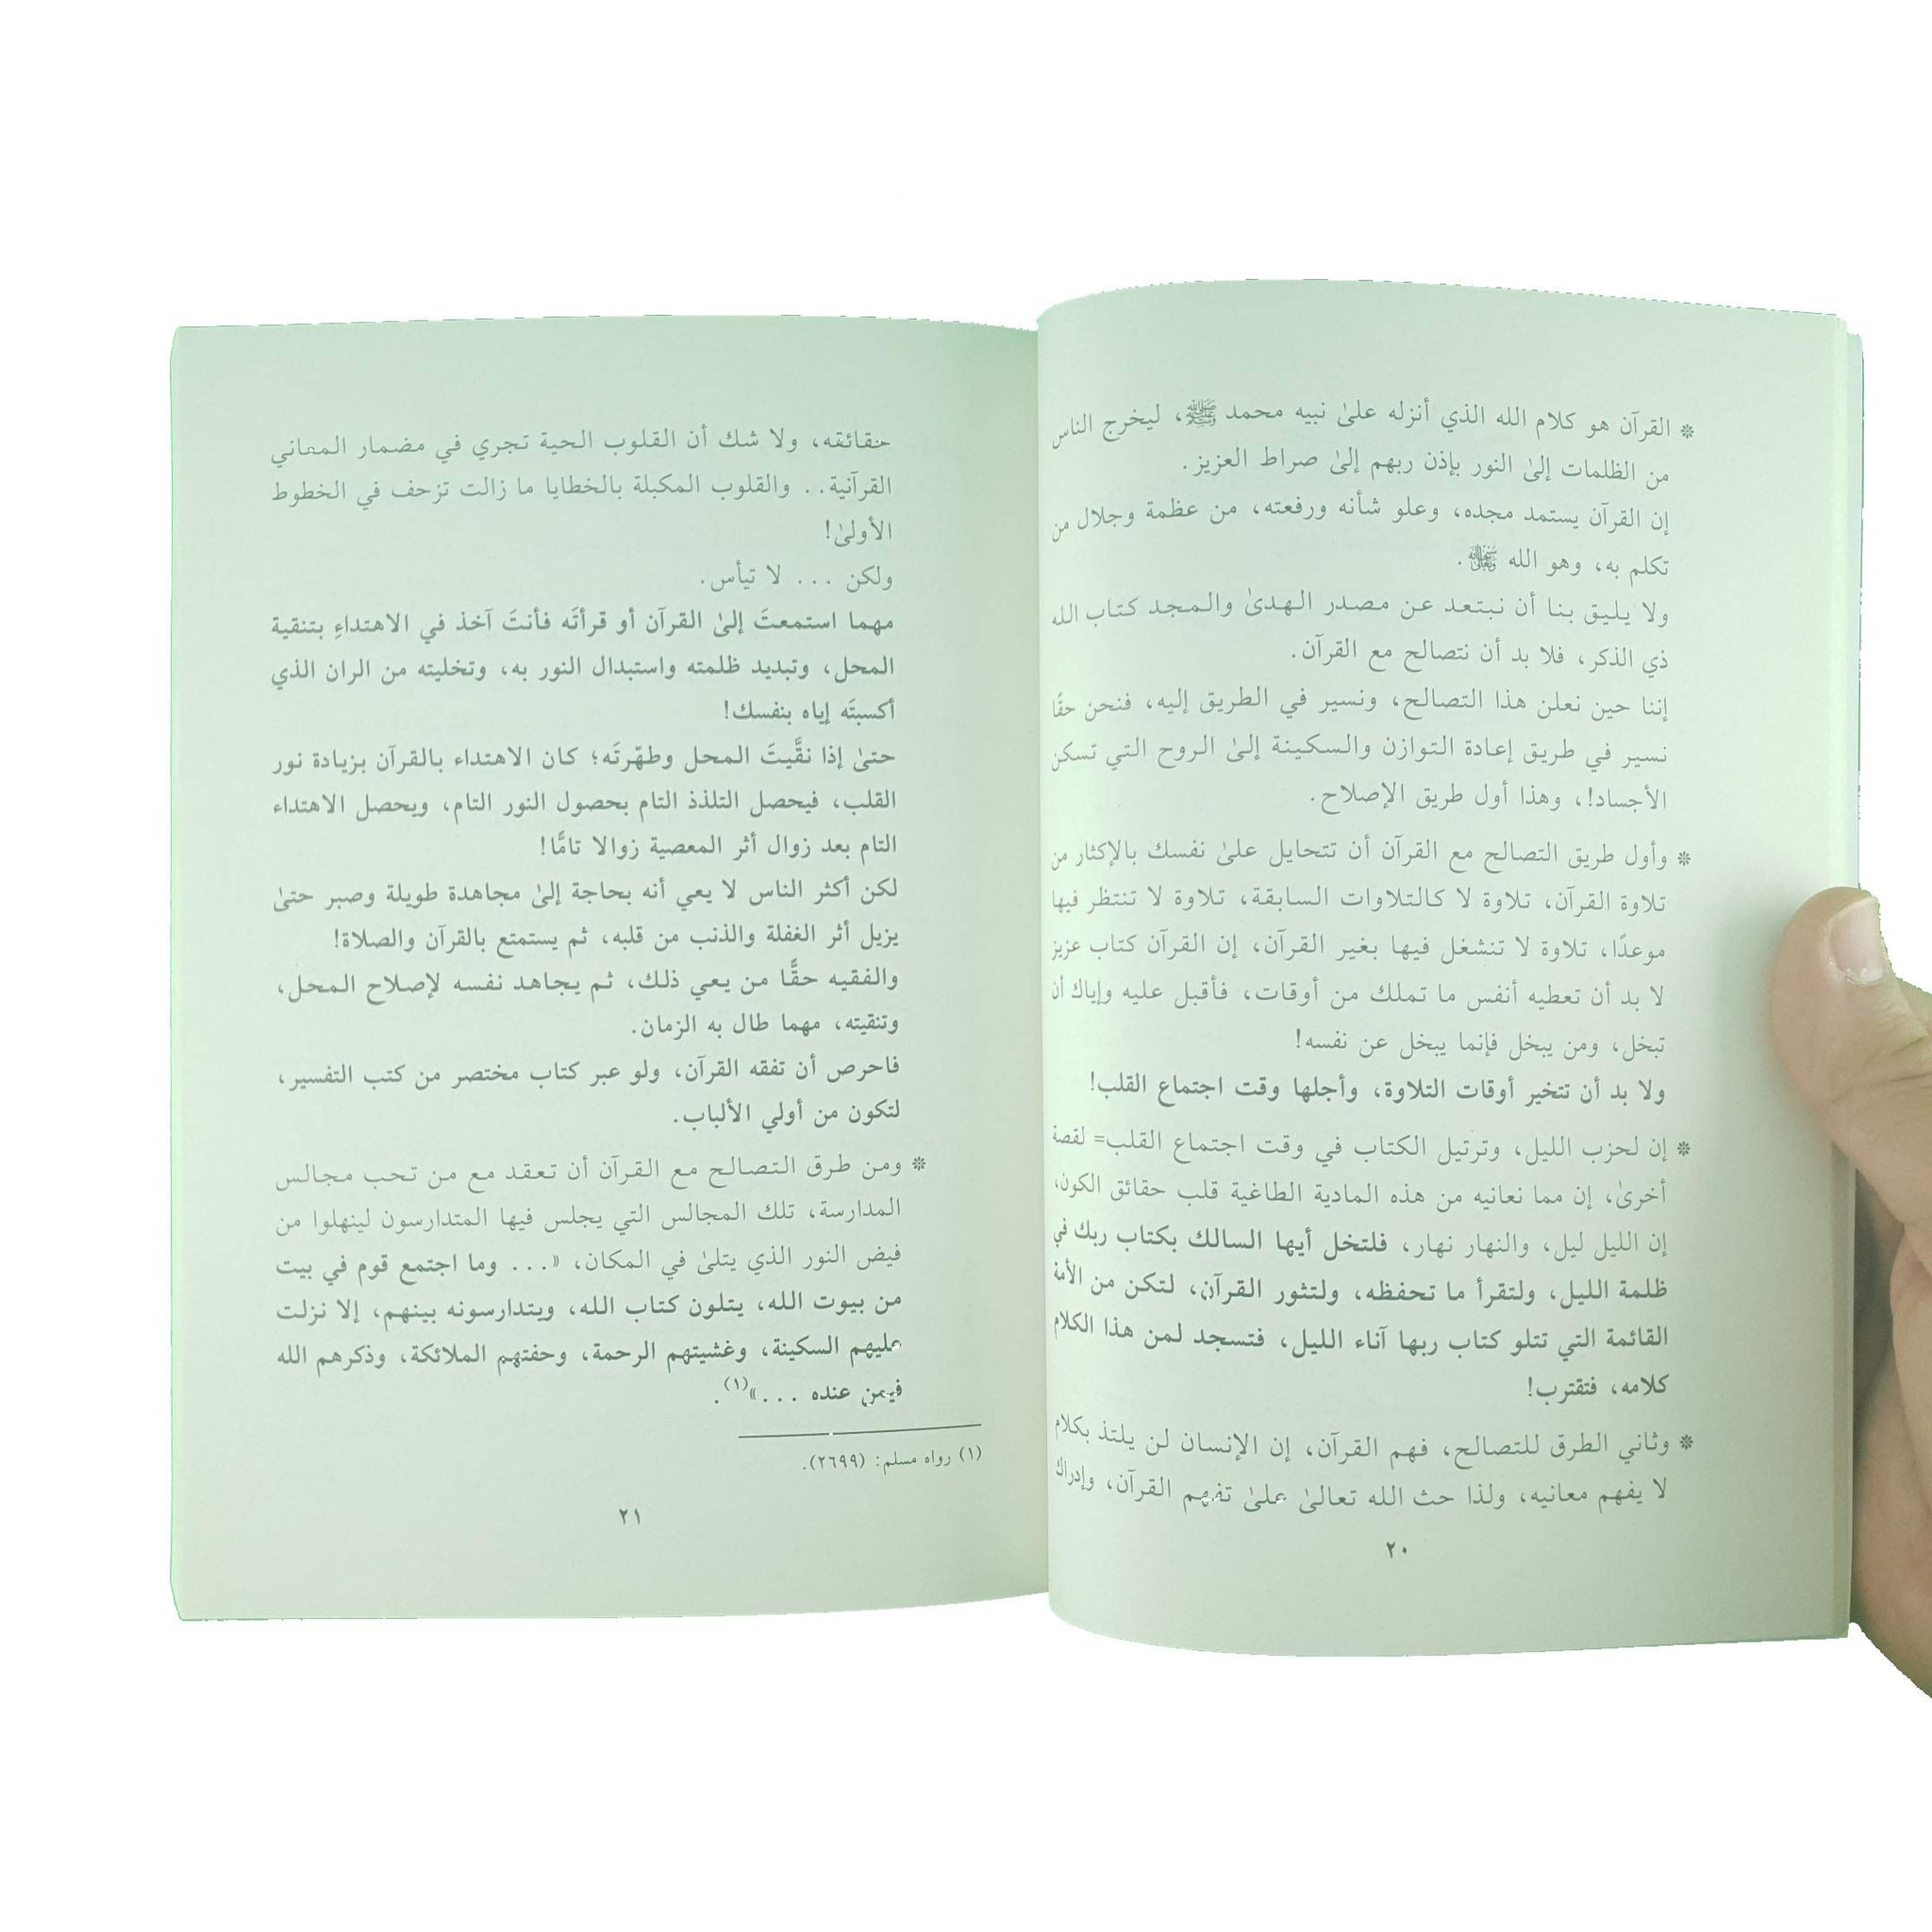 * القرآن هو كلام الله الذي أنزله علىٰ نبيه محمد ﷺ، ليخرج الناس
من الظلمات إلىٰ النور بإذن ربهم إلىٰ صراط العزيز.
إن القرآن يستمد مجده، وعلو شأنه ورفعته، من عظمة وجلال من
تكلم به، وهو الله ﷾.
ولا يليق بنا أن نبتعد عن مصدر الهدىٰ والمجد كتاب الله
ذي الذكر، فلا بد أن نتصالح مع القرآن.
إننا حين نعلن هذا التصالح، ونسير في الطريق إليه، فنحن حقًا
نسير في طريق إعادة التوازن والسكينة إلىٰ الروح التي تسكن
الأجساد!، وهذا أول طريق الإصلاح.
* وأول طريق التصالح مع القرآن أن تتحايل علىٰ نفسك بالإكثار من
تلاوة القرآن، تلاوة لا كالتلاوات السابقة، تلاوة لا تنتظر فيها
موعدًا، تلاوة لا تنشغل فيها بغير القرآن، إن القرآن كتاب عزيز
لا بد أن تعطيه أنفس ما تملك من أوقات، فأقبل عليه وإياك أن
تبخل، ومن يبخل فإنما يبخل عن نفسه!
ولا بد أن تتخير أوقات التلاوة، وأجلها وقت اجتماع القلب!
* إن لحزب الليل، وترتيل الكتاب في وقت اجتماع القلب= لقصة
أخرىٰ، إن مما نعانيه من هذه المادية الطاغية قلب حقائق الكون،
إن الليل ليل، والنهار نهار، فلتخل أيها السالك بكتاب ربك في
ظلمة الليل، ولتقرأ ما تحفظه، ولتثور القرآن، لتكن من الأمة
القائمة التي تتلو كتاب ربها آناء الليل، فتسجد لمن هذا الكلام
كلامه، فتقترب!
* وثاني الطرق للتصالح، فهم القرآن، إن الإنسان لن يلتذ بكلام
لا يفهم معانيه، ولذا حث الله تعالىٰ علىٰ تفهم القرآن، وإدراك
٢٠
حقائقه، ولا شك أن القلوب الحية تجري في مضمار المعاني
القرآنية.. والقلوب المكبلة بالخطايا ما زالت تزحف في الخطوط
الأولىٰ!
ولكن ... لا تيأس.
مهما استمعتَ إلىٰ القرآن أو قرأتَه فأنتَ آخذ في الاهتداءِ بتنقية
المحل، وتبديد ظلمته واستبدال النور به، وتخليته من الران الذي
أكسبتَه إياه بنفسك!
حتىٰ إذا نقَّيتَ المحل وطهّرتَه؛ كان الاهتداء بالقرآن بزيادة نور
القلب، فيحصل التلذذ التام بحصول النور التام، ويحصل الاهتداء
التام بعد زوال أثر المعصية زوالا تامًّا!
لكن أكثر الناس لا يعي أنه بحاجة إلىٰ مجاهدة طويلة وصبر حتىٰ
يزيل أثر الغفلة والذنب من قلبه، ثم يستمتع بالقرآن والصلاة!
والفقيه حقًّا من يعي ذلك، ثم يجاهد نفسه لإصلاح المحل،
وتنقيته، مهما طال به الزمان.
فاحرص أن تفقه القرآن، ولو عبر كتاب مختصر من كتب التفسير،
لتكون من أولي الألباب.
* ومن طرق التصالح مع القرآن أن تعقد مع من تحب مجالس
المدارسة، تلك المجالس التي يجلس فيها المتدارسون لينهلوا من
فيض النور الذي يتلىٰ في المكان، «... وما اجتمع قوم في بيت
من بيوت الله، يتلون كتاب الله، ويتدارسونه بينهم، إلا نزلت
عليهم السكينة، وغشيتهم الرحمة، وحفتهم الملائكة، وذكرهم الله
فيمن عنده ...»(١).
(١) رواه مسلم: (٢٦٩٩).
٢١